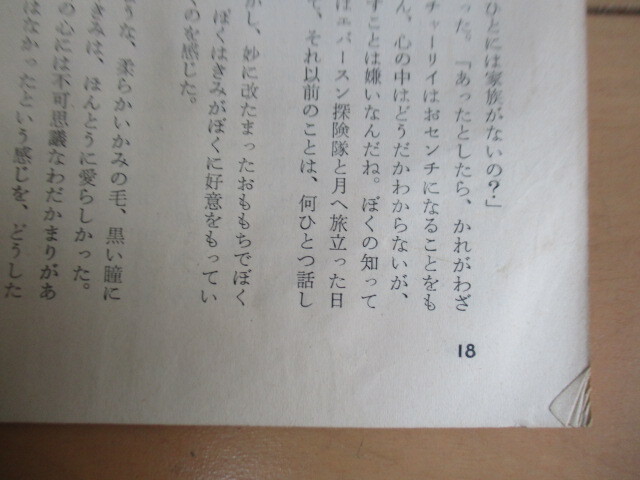 ひとには家族がないの？」
った。「あったとしたら、かれがわざ
チャーリイはおセンチになることをも
ん。心の中はどうだかわからないが、
すことは嫌いなんだね。ぼくの知って
はエバースン探険隊と月へ旅立った日
て、それ以前のことは、何ひとつ話し
かし、妙に改たまったおももちでぼく
ぼくはきみがぼくに好意をもってい
のを感じた。
うな、柔らかいかみの毛、黒い瞳に
きみは、ほんとうに愛らしかった。
の心には不可思議なわだかまりがあ
はなかったという感じを、どうした
18